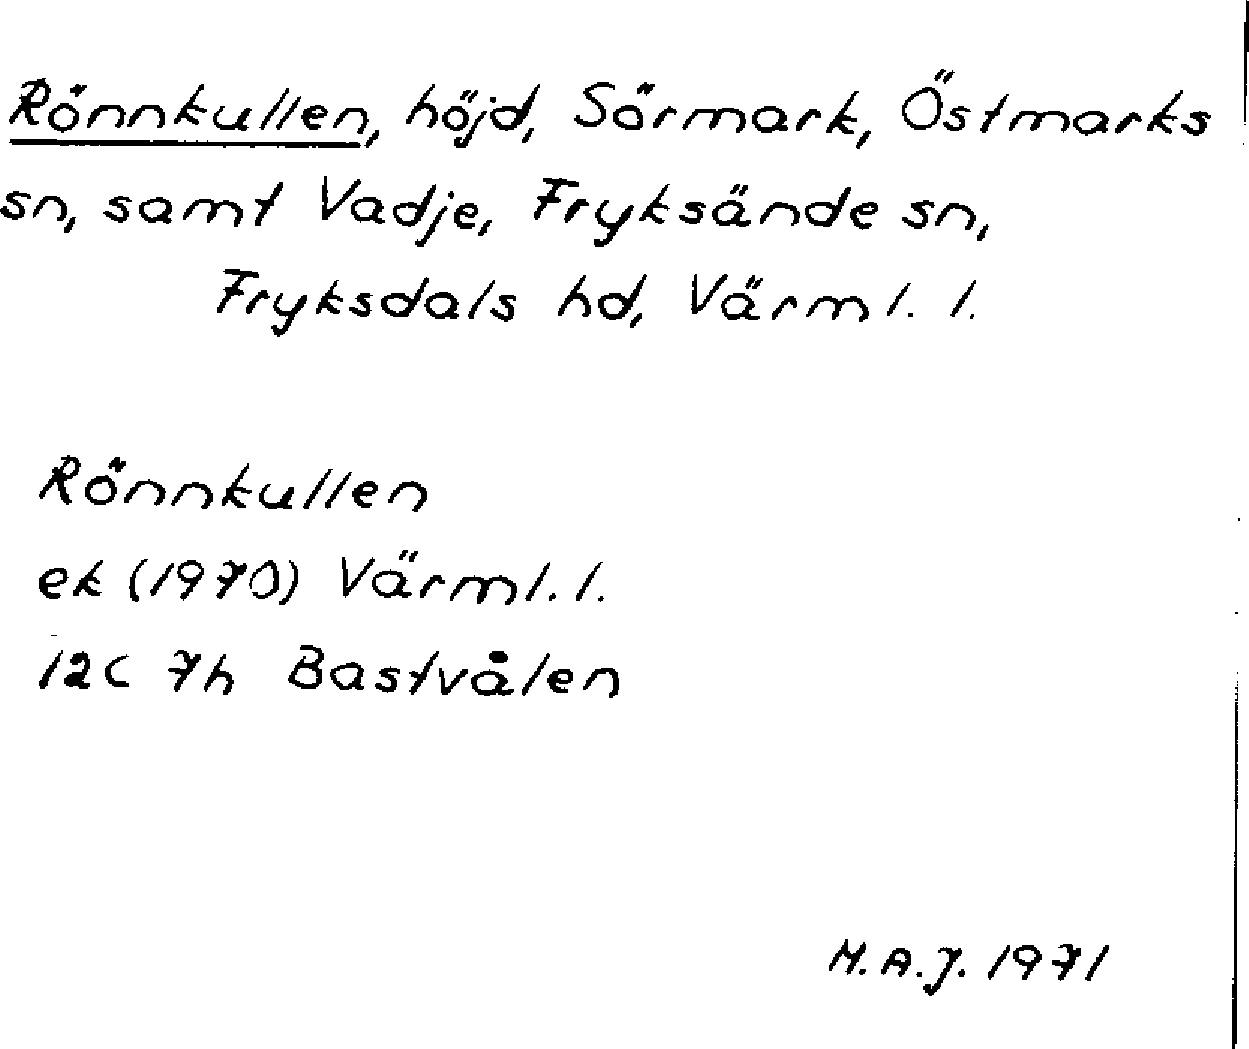 Rönnkullen, höjd, Sörmark, Östmarks
sn, samt Vadje, Fryksände sn,
Fryksdals hd, Värml. l.
Rönnkullen
ek (1970) Värml. l.
12C 7h Bastvålen
M.A.J. 1971